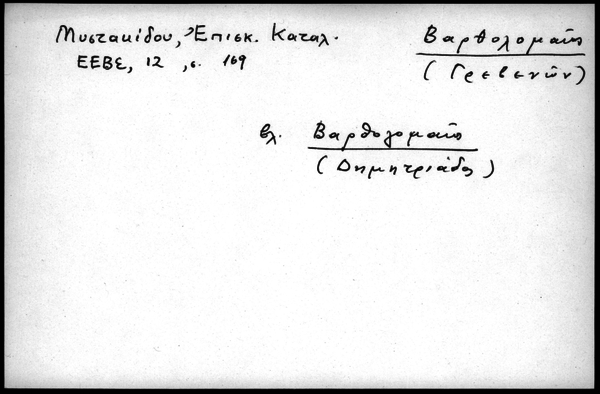 Μυστακίδου, Ἐπισκ. Καταλ.
ΕΕΒΣ, 12, σ. 169
Βαρθολομαῖος
(Γρεβενῶν)
βλ. Βαρθολομαῖος
(Δημητριάδος)